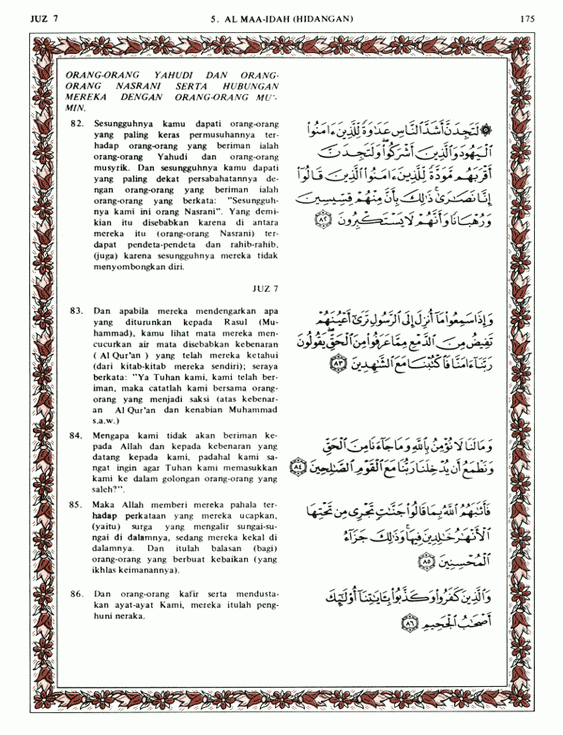 JUZ 7
5. AL MAA-IDAH (HIDANGAN)
175
ORANG-ORANG YAHUDI DAN ORANG-
ORANG NASRANI SERTA HUBUNGAN
MEREKA DENGAN ORANG-ORANG MU'-
MIN.
82. Sesungguhnya kamu dapati orang-orang
yang paling keras permusuhannya ter-
hadap orang-orang yang beriman ialah
orang-orang Yahudi dan orang-orang
musyrik. Dan sesungguhnya kamu dapati
yang paling dekat persabahatannya de-
ngan orang-orang yang beriman ialah
orang-orang yang berkata: "Sesungguh-
nya kami ini orang Nasrani". Yang demi-
kian itu disebabkan karena di antara
mereka itu (orang-orang Nasrani) ter-
dapat pendeta-pendeta dan rahib-rahib,
(juga) karena sesungguhnya mereka tidak
menyombongkan diri.
۞ لَتَجِدَنَّ أَشَدَّ ٱلنَّاسِ عَدَٰوَةً لِّلَّذِينَ ءَامَنُوا۟
ٱلْيَهُودَ وَٱلَّذِينَ أَشْرَكُوا۟ وَلَتَجِدَنَّ
أَقْرَبَهُم مَّوَدَّةً لِّلَّذِينَ ءَامَنُوا۟ ٱلَّذِينَ قَالُوٓا۟
إِنَّا نَصَٰرَىٰ ذَٰلِكَ بِأَنَّ مِنْهُمْ قِسِّيسِينَ
وَرُهْبَانًا وَأَنَّهُمْ لَا يَسْتَكْبِرُونَ ٨٢
JUZ 7
83. Dan apabila mereka mendengarkan apa
yang diturunkan kepada Rasul (Mu-
hammad), kamu lihat mata mereka men-
cucurkan air mata disebabkan kebenaran
( Al Qur'an ) yang telah mereka ketahui
(dari kitab-kitab mereka sendiri); seraya
berkata: "Ya Tuhan kami, kami telah ber-
iman, maka catatlah kami bersama orang-
orang yang menjadi saksi (atas kebenar-
an Al Qur'an dan kenabian Muhammad
s.a.w.)
وَإِذَا سَمِعُوا۟ مَآ أُنزِلَ إِلَى ٱلرَّسُولِ تَرَىٰٓ أَعْيُنَهُمْ
تَفِيضُ مِنَ ٱلدَّمْعِ مِمَّا عَرَفُوا۟ مِنَ ٱلْحَقِّ يَقُولُونَ
رَبَّنَآ ءَامَنَّا فَٱكْتُبْنَا مَعَ ٱلشَّٰهِدِينَ ٨٣
84. Mengapa kami tidak akan beriman ke-
pada Allah dan kepada kebenaran yang
datang kepada kami, padahal kami sa-
ngat ingin agar Tuhan kami memasukkan
kami ke dalam golongan orang-orang yang
saleh?".
وَمَا لَنَا لَا نُؤْمِنُ بِٱللَّهِ وَمَا جَآءَنَا مِنَ ٱلْحَقِّ
وَنَطْمَعُ أَن يُدْخِلَنَا رَبُّنَا مَعَ ٱلْقَوْمِ ٱلصَّٰلِحِينَ ٨٤
85. Maka Allah memberi mereka pahala ter-
hadap perkataan yang mereka ucapkan,
(yaitu) surga yang mengalir sungai-su-
ngai di dalamnya, sedang mereka kekal di
dalamnya. Dan itulah balasan (bagi)
orang-orang yang berbuat kebaikan (yang
ikhlas keimanannya).
فَأَثَٰبَهُمُ ٱللَّهُ بِمَا قَالُوا۟ جَنَّٰتٍ تَجْرِى مِن تَحْتِهَا
ٱلْأَنْهَٰرُ خَٰلِدِينَ فِيهَا وَذَٰلِكَ جَزَآءُ
ٱلْمُحْسِنِينَ ٨٥
86. Dan orang-orang kafir serta mendusta-
kan ayat-ayat Kami, mereka itulah peng-
huni neraka.
وَٱلَّذِينَ كَفَرُوا۟ وَكَذَّبُوا۟ بِـَٔايَٰتِنَآ أُو۟لَٰٓئِكَ
أَصْحَٰبُ ٱلْجَحِيمِ ٨٦